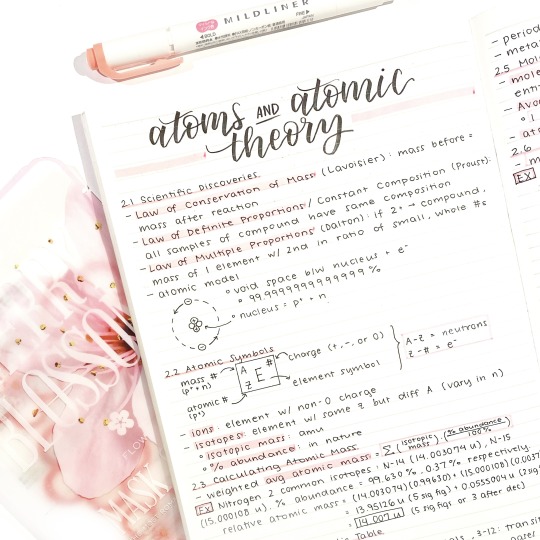 MILDLINER
atoms AND atomic
theory
2.1 Scientific Discoveries
- Law of Conservation of Mass (Lavoisier): mass before =
mass after reaction
- Law of Definite Proportions / Constant Composition (Proust):
all samples of compound have same composition
- Law of Multiple Proportions (Dalton): if 2+ → compound,
mass of 1 element w/ 2nd in ratio of small, whole #s
- atomic model
° void space b/w nucleus + e⁻
° 99.9999999999999%
° nucleus = p⁺ + n
2.2 Atomic Symbols
mass #
(p⁺+n)
atomic #
(p⁺)
A
Z
E
#
charge (+, -, or 0)
element symbol
A-Z = neutrons
Z-# = e⁻
- ions: element w/ non-0 charge
- isotopes: element w/ same Z but diff A (vary in n)
° isotopic mass: amu
° % abundance: in nature
2.3 Calculating Atomic Mass
- weighted avg atomic mass = Σ (isotopic mass) · (% abundance / 100%)
EX Nitrogen 2 common isotopes: N-14 (14.003074 u), N-15
(15.000108 u). % abundance = 99.630%, 0.37% respectively.
relative atomic mass = (14.003074)(0.99630) + (15.000108)(0.0037)
= 13.95126 u (5 sig fig) + 0.0555004 u (2 sig
= 14.007 u (5 sig figs or 3 after dec)
Table
, 3-12: transi
- period
- metal
2.5 Mol
- mole
enti
- Avo
° 1
- ato
2.6
- m
EX